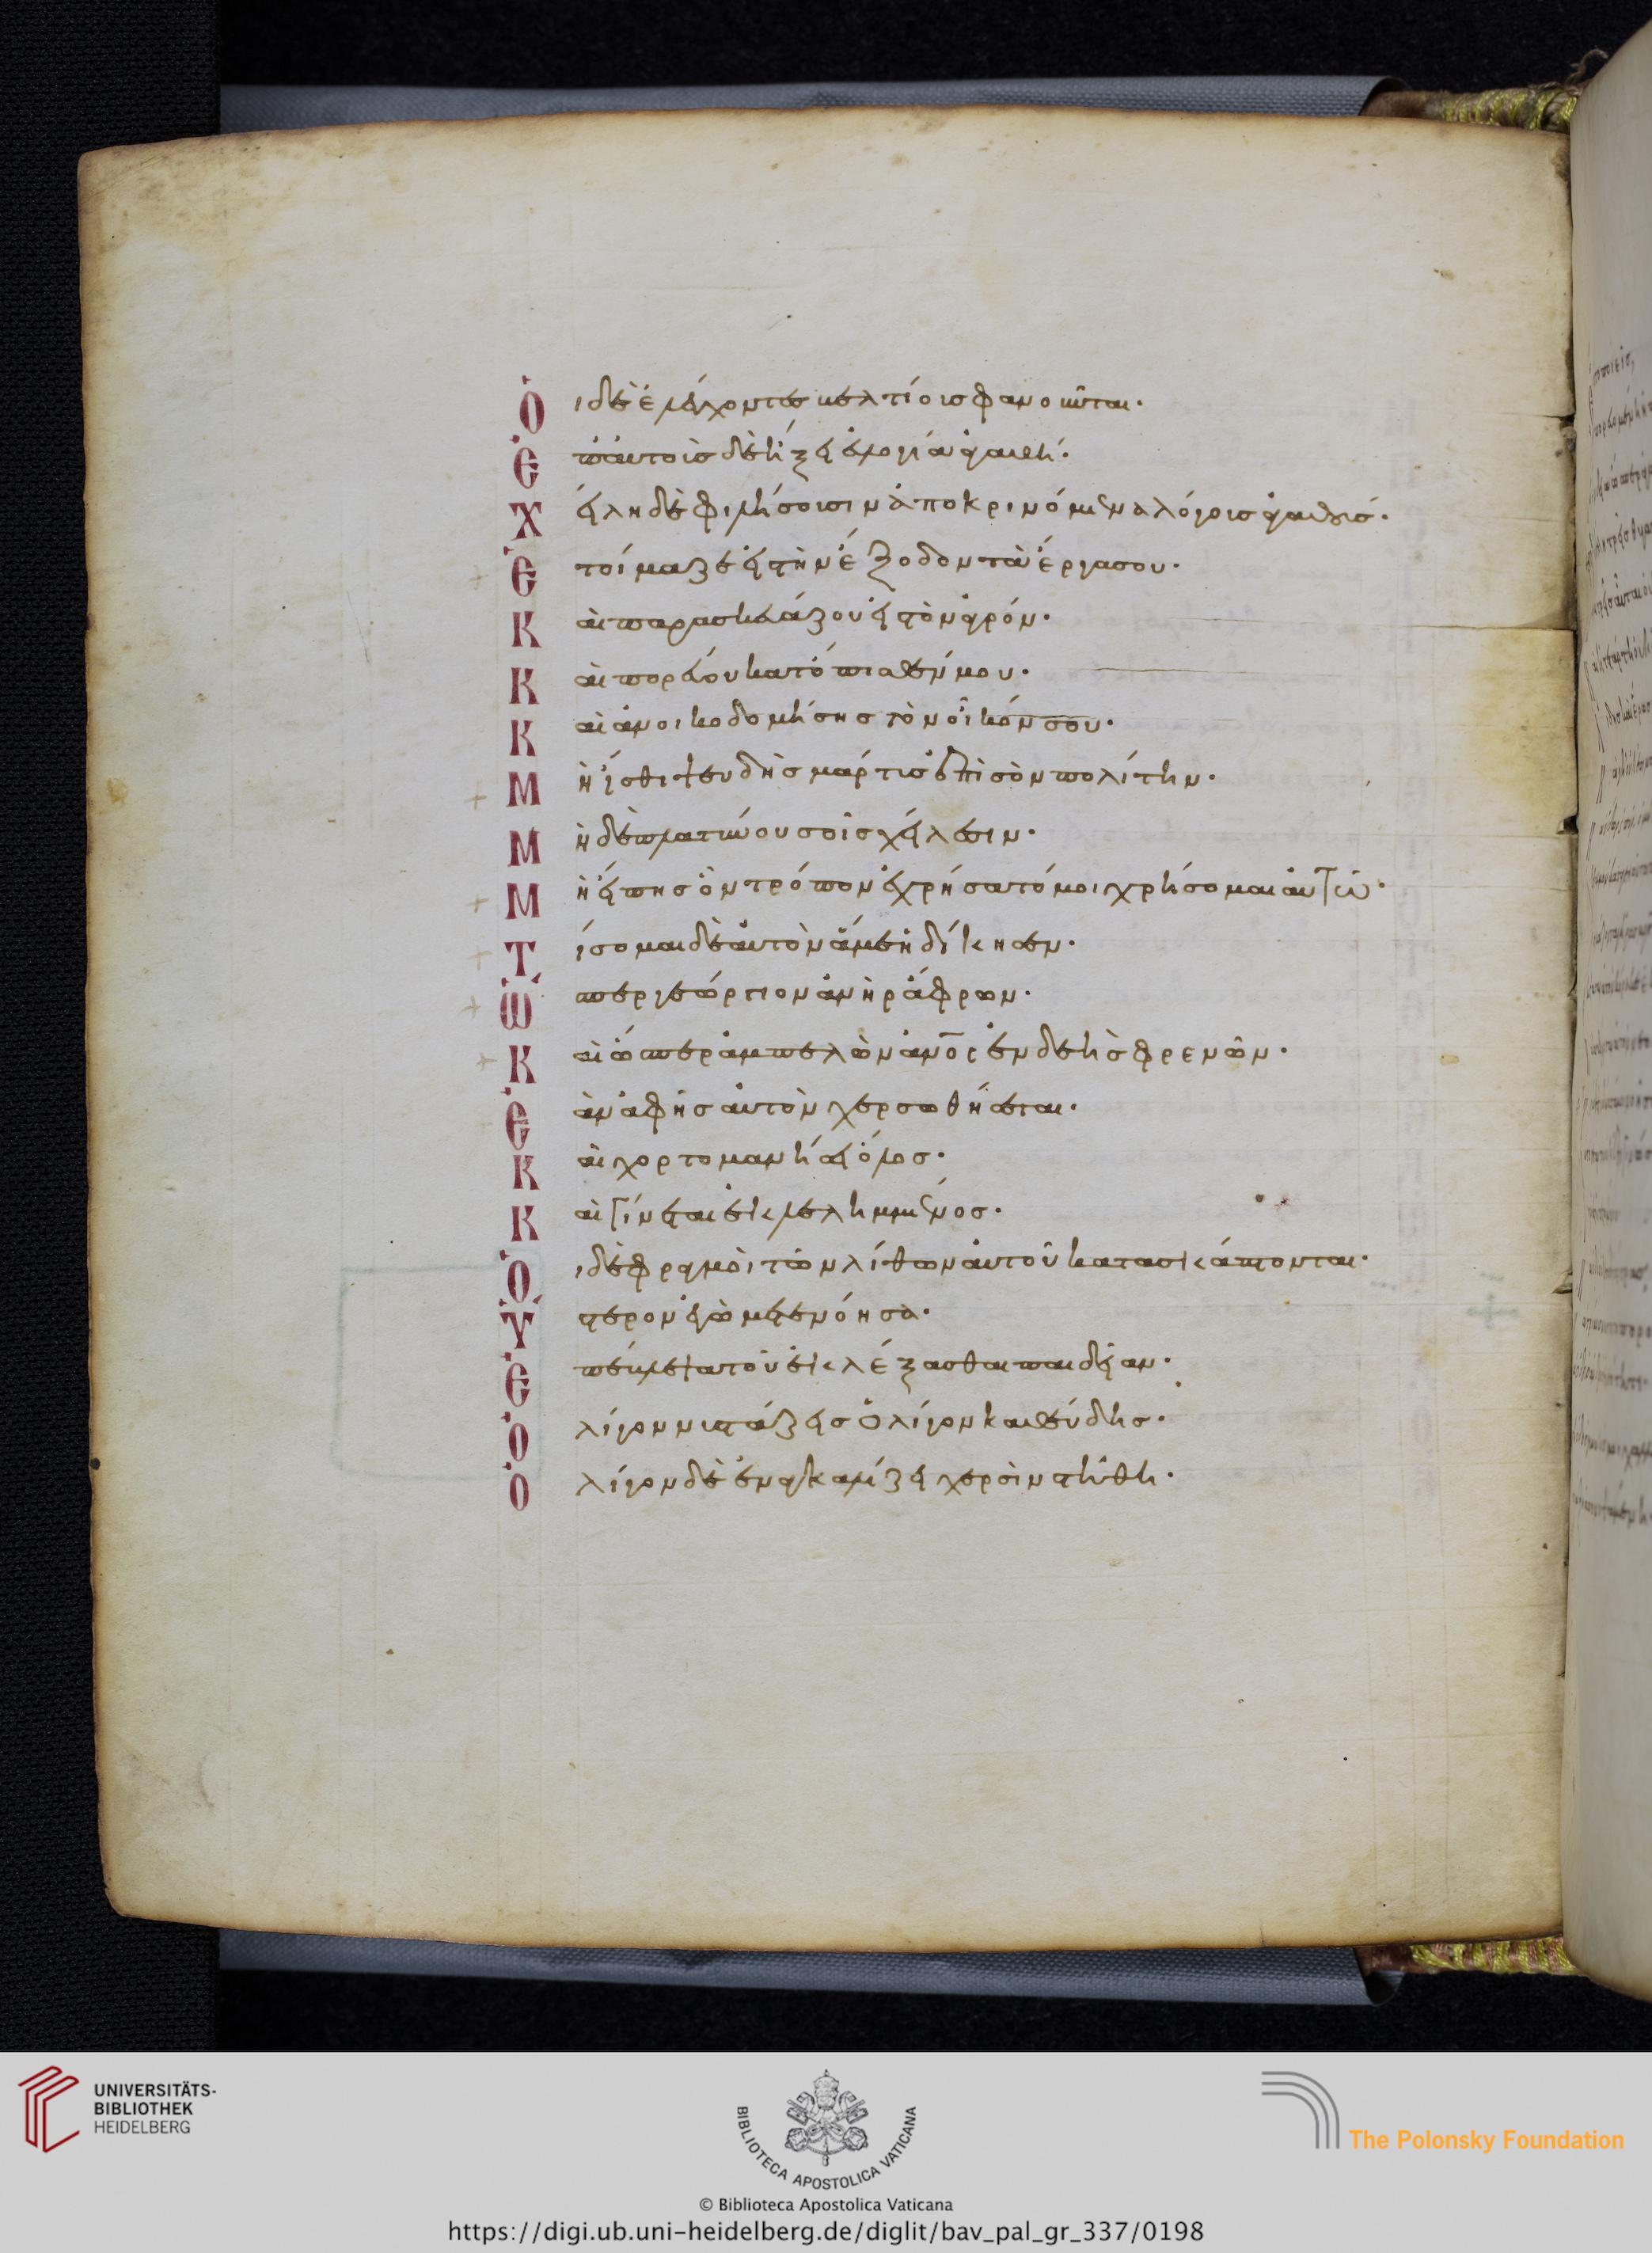 Οἱ δὲ ἐλέγχοντες βελτίοις φανοῦνται·
Ἐπ αὐτοὶς δὲ ἥξει εὐλογία ἀγαθή·
Χείλη δὲ φιλήσουσιν ἀποκρινόμενα λόγους ἀγαθούς·
Ἑτοίμαζε εἰς τὴν ἔξοδον τὰ ἔργα σου·
Καὶ παρασκευάζου εἰς τὸν ἀγρόν·
Καὶ πορεύου κατόπισθέν μου·
Καὶ ἀνοικοδομήσης τὸν οἶκόν σου·
Μὴ ἴσθι ψευδὴς μάρτυς ἐπὶ σὸν πολίτην·
Μηδὲ πλατύνου σοῖς χείλεσιν·
Μὴ εἴπης ὃν τρόπον ἐχρήσατό μοι χρήσομαι αὐτῶ·
Τίσομαι δὲ αὐτὸν ἅ με ἠδίκησεν·
Ὥσπερ γεώργιον ἀνὴρ ἄφρων·
Καὶ ὥσπερ ἀμπελὼν ἄνος ἐνδεὴς φρενῶν·
Ἐὰν ἀφῆς αὐτὸν χερσωθήσεται·
Καὶ χορτομανήσει ὅλος·
Καὶ γίνεται ἐκλελημμένος·
Οἱ δὲ φραγμοὶ τῶν λίθων αὐτοῦ κατασκάπτονται·
Ὕστερον ἐγὼ μετενόησα·
Ἐπέβλεψα τοῦ ἐκλέξασθαι παιδείαν·
Ὀλίγον νυστάζεις ὀλίγον καθεύδης·
Ὀλίγον δὲ ἐναγκαλίζει χερσὶν στήθη·
UNIVERSITÄTS-
BIBLIOTHEK
HEIDELBERG
BIBLIOTECA APOSTOLICA VATICANA
The Polonsky Foundation
© Biblioteca Apostolica Vaticana
https://digi.ub.uni-heidelberg.de/diglit/bav_pal_gr_337/0198